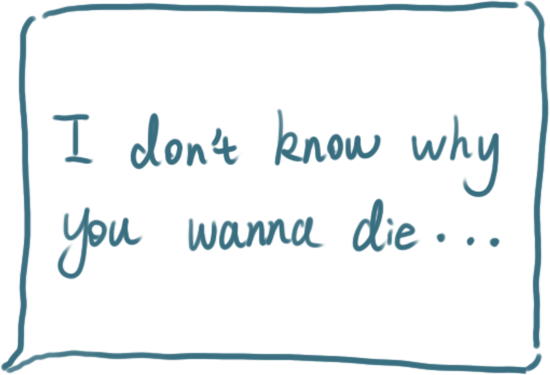 I don't know why
you wanna die...